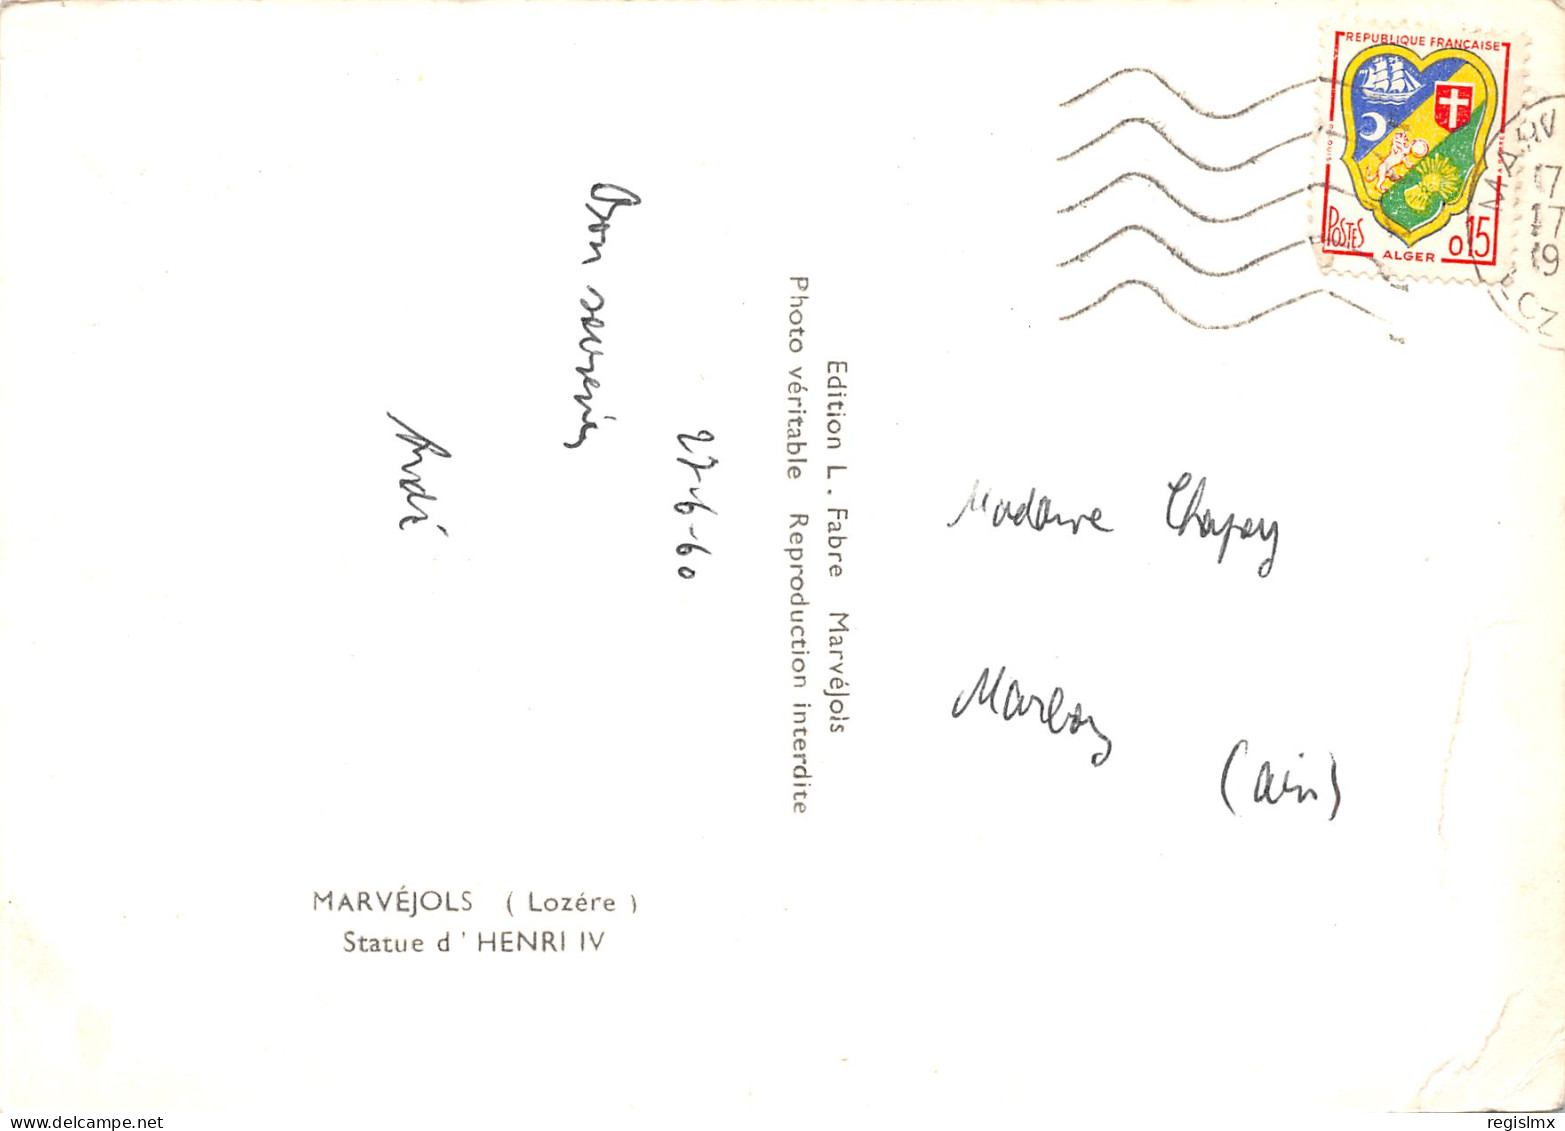 REPUBLIQUE FRANÇAISE
POSTES
ALGER
0,15
17
17
19
Bon souvenir
27-6-60
Edition L. Fabre Marvéjols
Photo véritable Reproduction interdite
Madame Chapay
(Ain)
MARVÉJOLS ( Lozére )
Statue d' HENRI IV
www.delcampe.net
regislmx